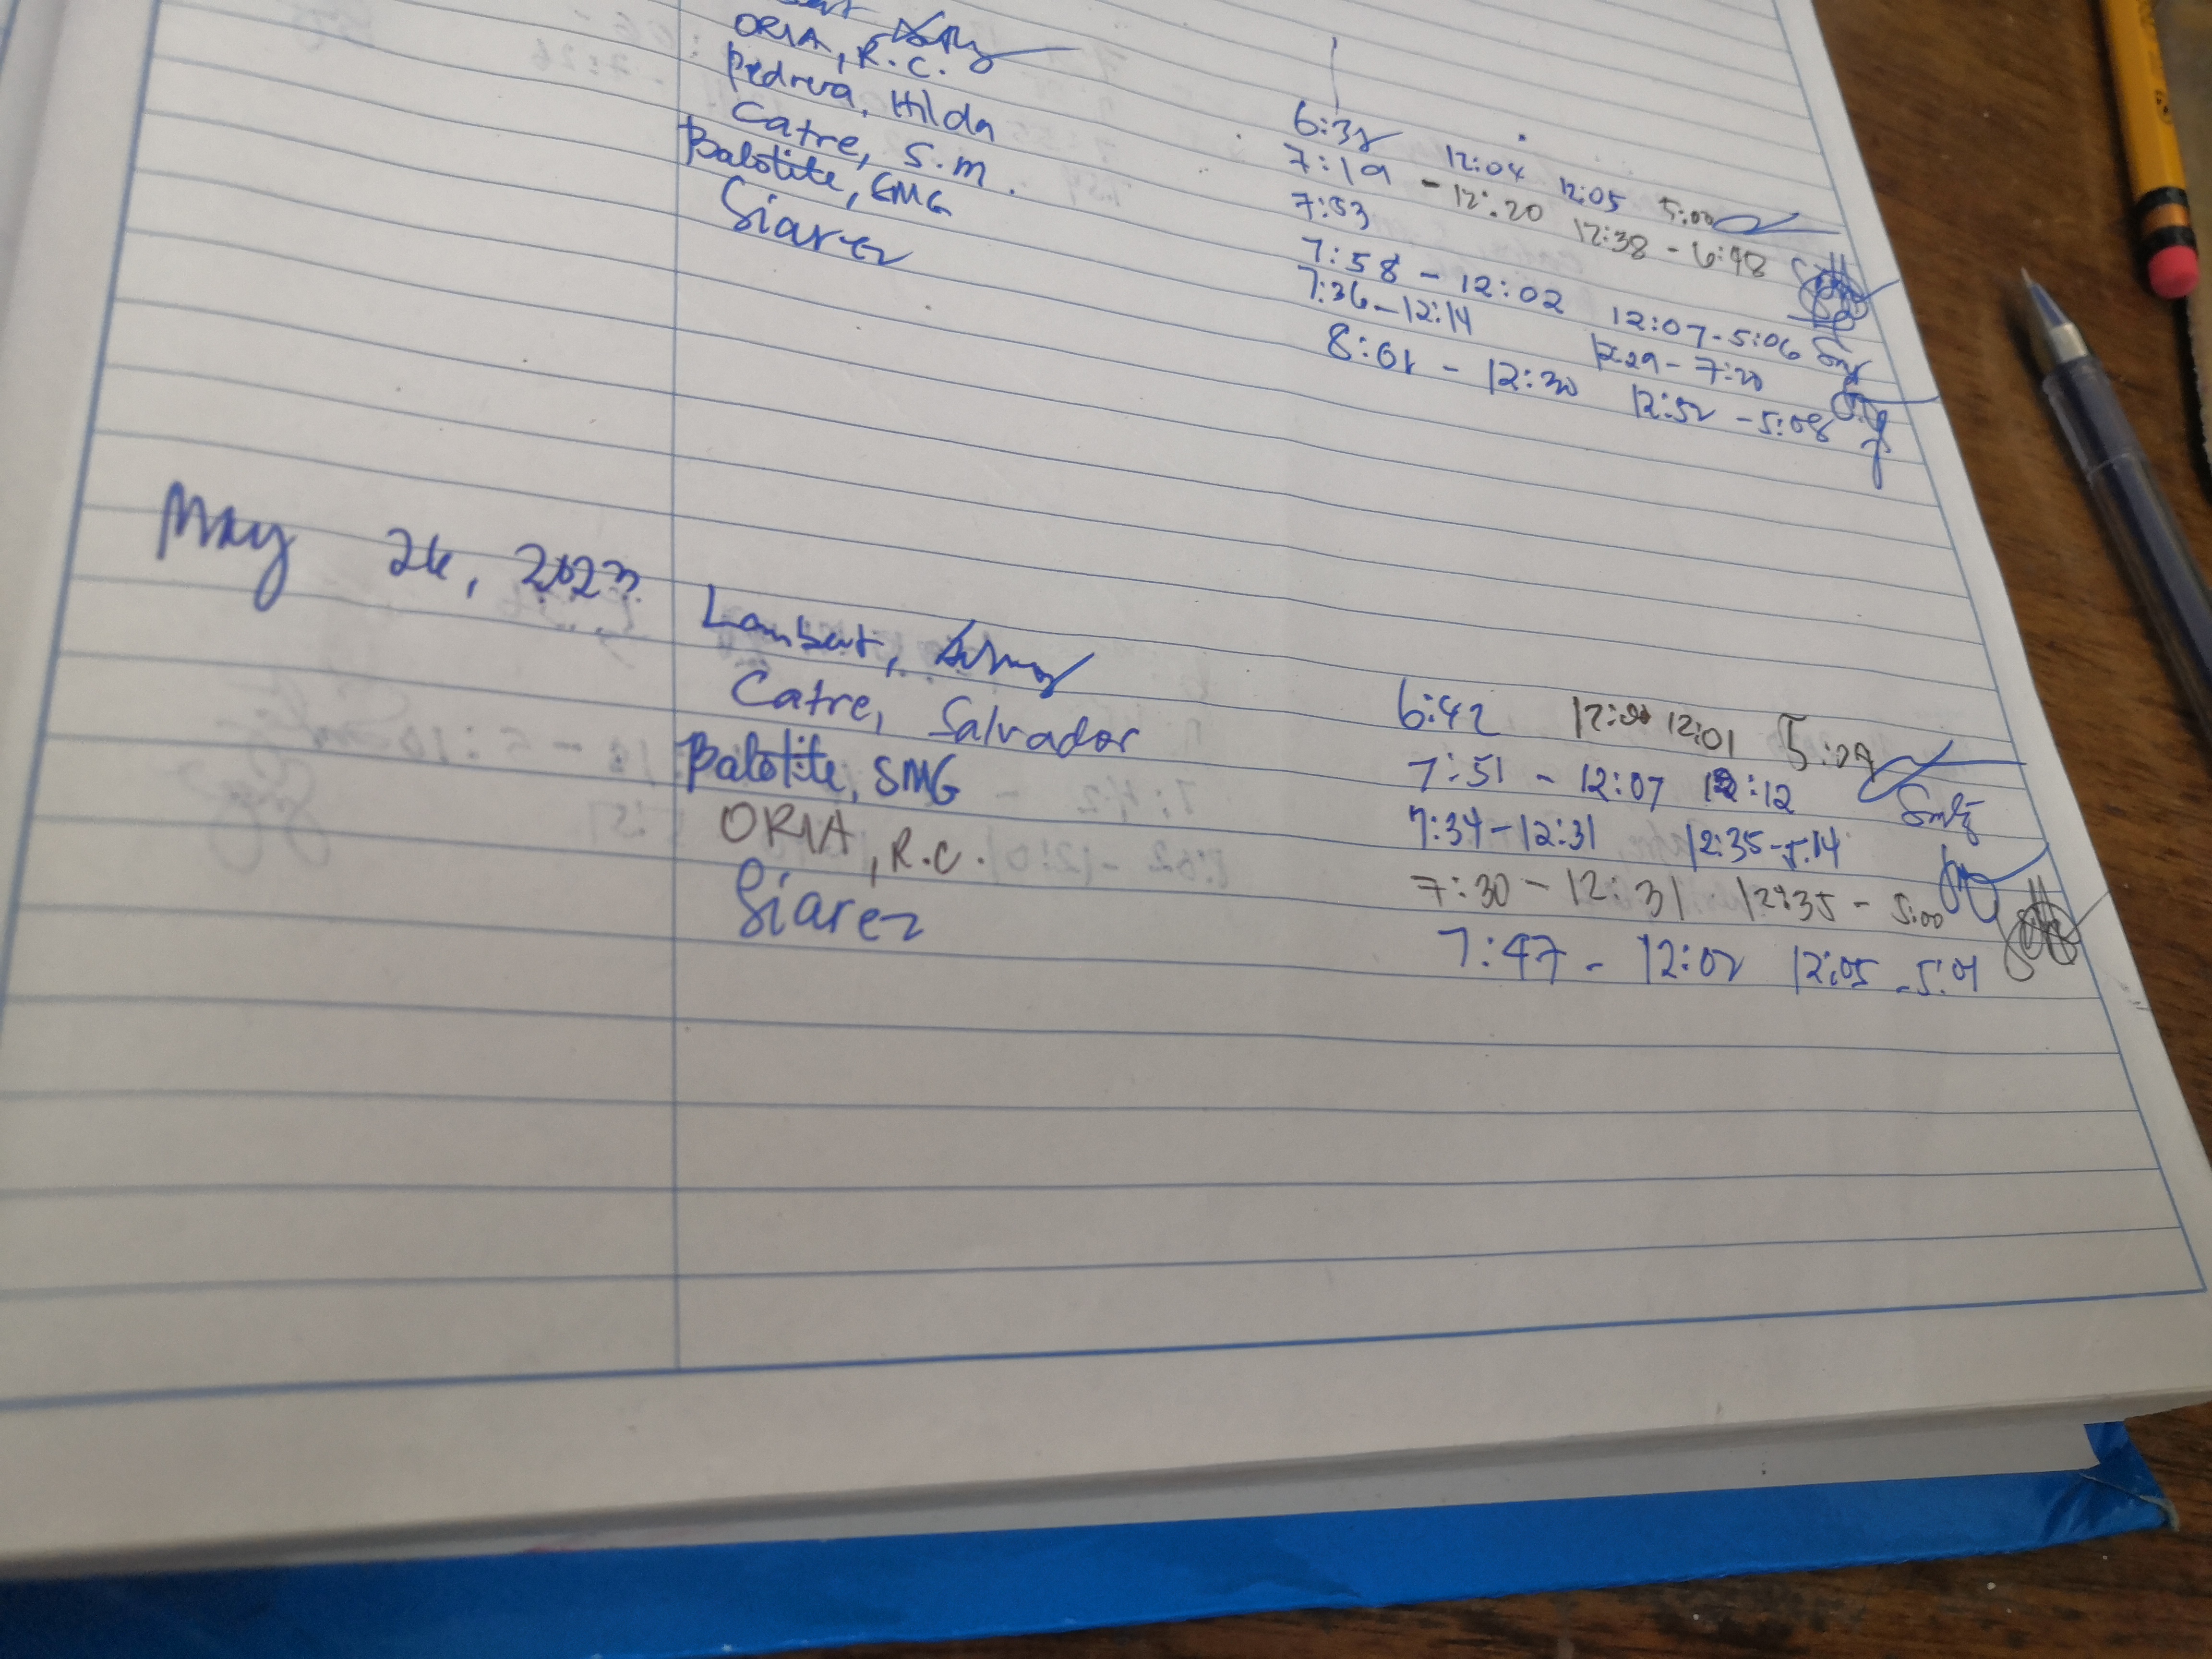 ORIA, R.C. 6:32 12:04 12:05 5:00
Pedrera, Hilda 7:19 - 12:20 12:38 - 6:48
Catre, S.M. 7:53
Balotite, SMG 7:58 - 12:02 12:07 - 5:06
Siarez 7:36 - 12:14 12:29 - 7:20
8:01 - 12:30 12:52 - 5:08
May 26, 2023
Lambert, 6:42 12:00 12:01 5:09
Catre, Salvador 7:51 - 12:07 12:12
Balotite, SMG 7:34 - 12:31 12:35 - 5:14
ORIA, R.C. 7:30 - 12:31 12:35 - 5:00
Siarez 7:47 - 12:02 12:05 - 5:01